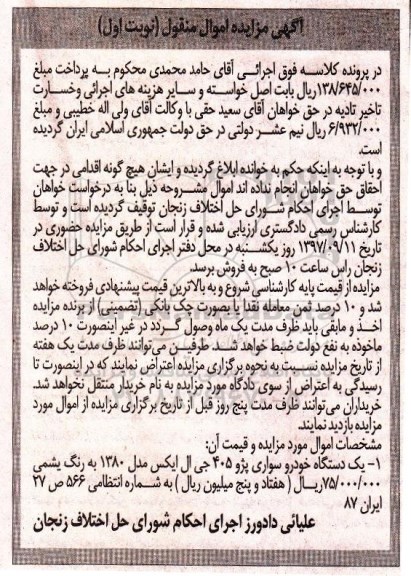 آگهی مزایده اموال منقول (نوبت اول)
در پرونده کلاسه فوق اجرائی آقای حامد محمدی محکوم به پرداخت مبلغ
۱۳۸/۶۴۵/۰۰۰ریال بابت اصل خواسته و سایر هزینه های اجرائی وخسارت
تاخیر تادیه در حق خواهان آقای سعید حقی با وکالت آقای ولی اله خطیبی و مبلغ
۶/۹۳۲/۰۰۰ ریال نیم عشر دولتی در حق دولت جمهوری اسلامی ایران گردیده
است.
و با توجه به اینکه حکم به خوانده ابلاغ گردیده و ایشان هیچ گونه اقدامی در جهت
احقاق حق خواهان انجام نداده اند اموال مشروحه ذیل بنا به درخواست خواهان
توسط اجرای احکام شورای حل اختلاف زنجان توقیف گردیده است و توسط
کارشناس رسمی دادگستری ارزیابی شده و قرار است از طریق مزایده حضوری در
تاریخ ۱۳۹۷/۰۹/۱۱ روز یکشنبه در محل دفتر اجرای احکام شورای حل اختلاف
زنجان راس ساعت ۱۰ صبح به فروش برسد.
مزایده از قیمت پایه کارشناسی شروع و به بالاترین قیمت پیشنهادی فروخته خواهد
شد و ۱۰ درصد ثمن معامله نقدا یا بصورت چک بانکی (تضمینی) از برنده مزایده
اخذ و مابقی باید ظرف مدت یک ماه وصول گردد در غیر اینصورت ۱۰ درصد
ماخوذه به نفع دولت ضبط خواهد شد طرفین می‌توانند ظرف مدت یک هفته
از تاریخ مزایده نسبت به نحوه برگزاری مزایده اعتراض نمایند که در اینصورت تا
رسیدگی به اعتراض از سوی دادگاه مورد مزایده به نام خریدار منتقل نخواهد شد.
خریداران می‌توانند ظرف مدت پنج روز قبل از تاریخ برگزاری مزایده از اموال مورد
مزایده بازدید نمایند.
مشخصات اموال مورد مزایده و قیمت آن:
۱- یک دستگاه خودرو سواری پژو ۴۰۵ جی ال ایکس مدل ۱۳۸۰ به رنگ یشمی
۷۵/۰۰۰/۰۰۰ریال ( هفتاد و پنج میلیون ریال ) به شماره انتظامی ۵۶۶ ص ۲۷
ایران ۸۷
علیائی دادورز اجرای احکام شورای حل اختلاف زنجان